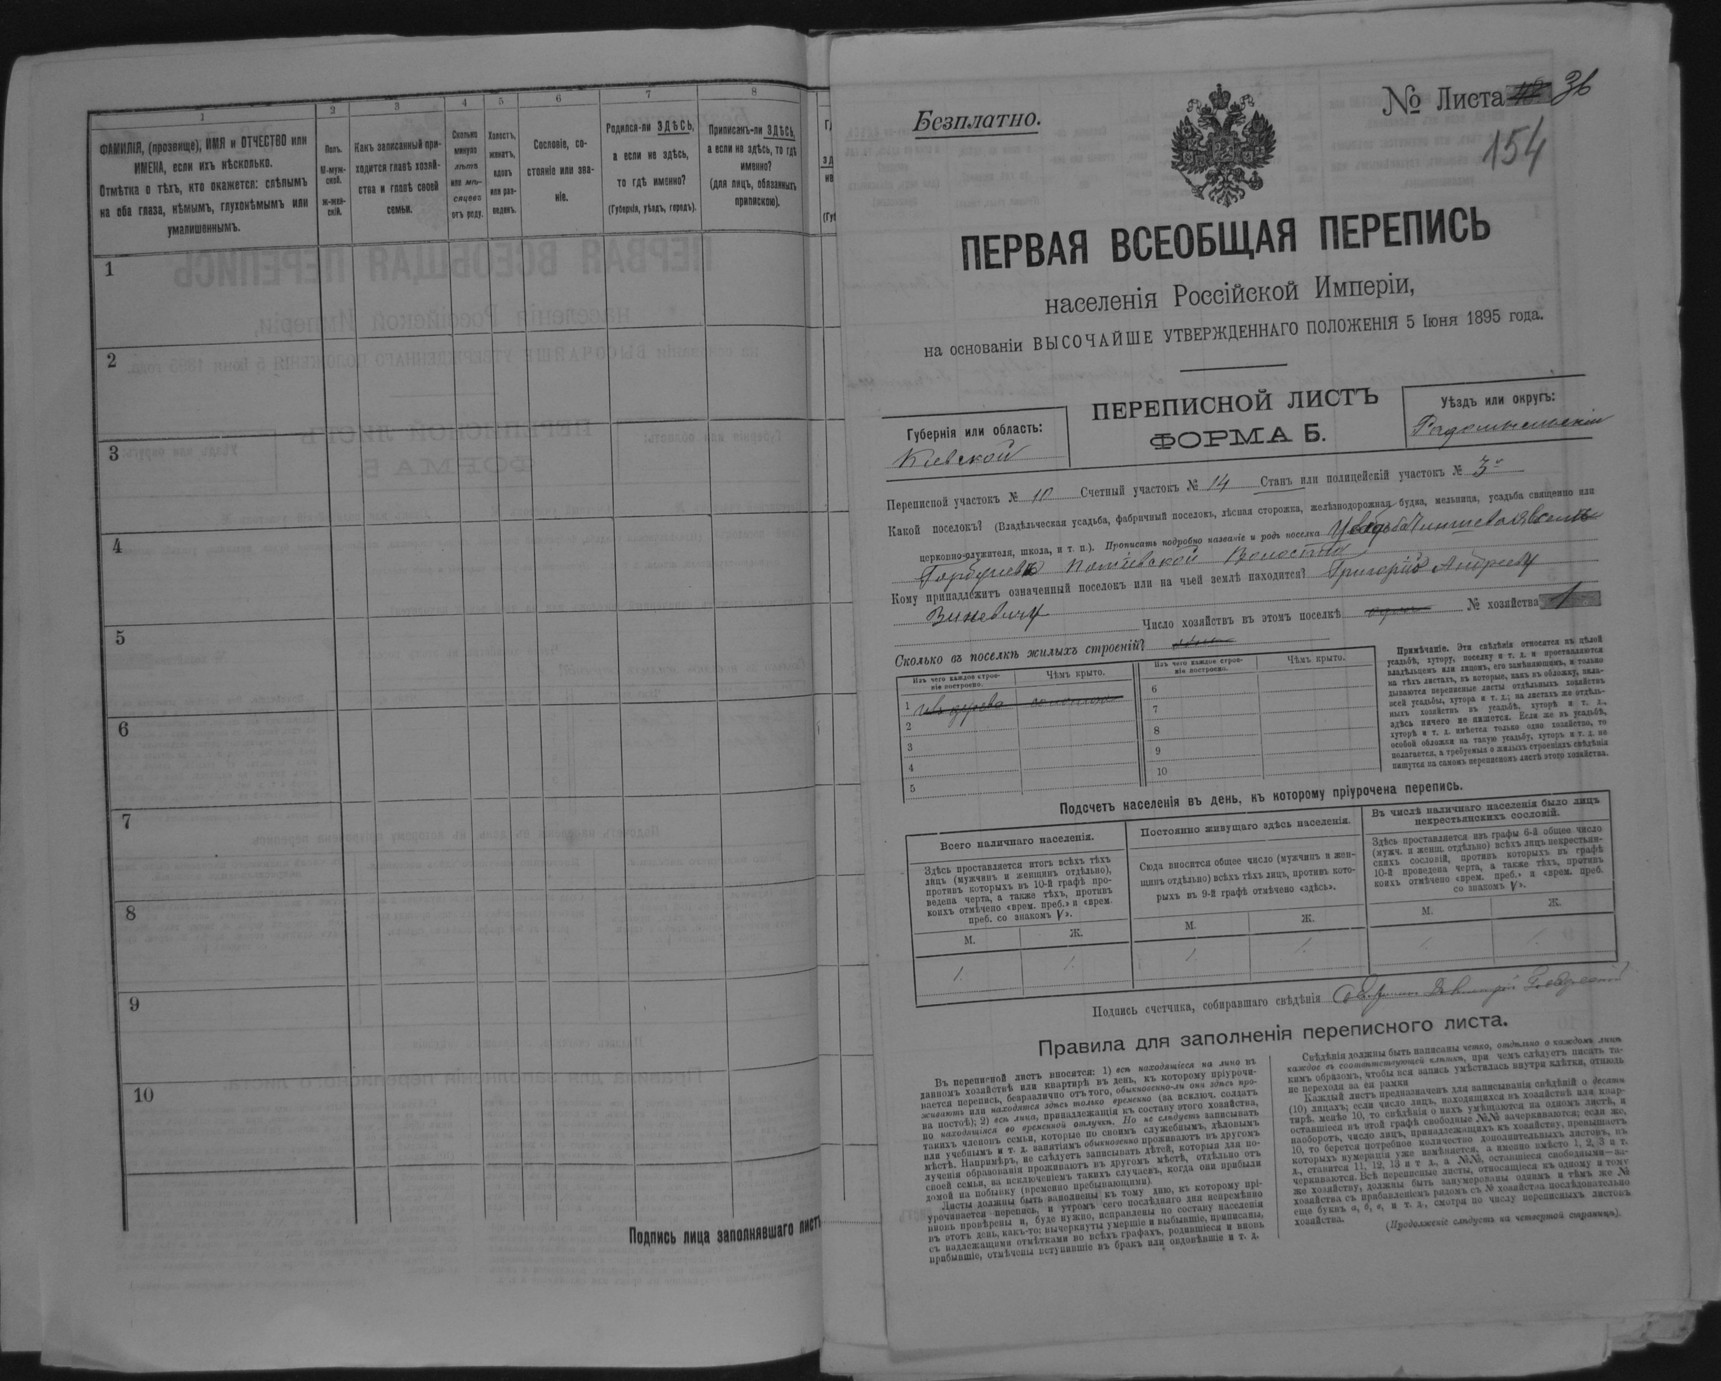 1 2 3 4 5 6 7 8
ФАМИЛІЯ, (прозвище), ИМЯ и ОТЧЕСТВО или
ИМЕНА, если ихъ нѣсколько.
Отмѣтка о тѣхъ, кто окажется: слѣпымъ
на оба глаза, нѣмымъ, глухонѣмымъ или
умалишеннымъ.
Полъ.
М-муж-
ской.
ж-жен-
скій.
Какъ записанный при-
ходится главѣ хозяй-
ства и главѣ своей
семьи.
Сколько
минуло
лѣтъ
или мѣ-
сяцевъ
отъ роду.
Холостъ,
женатъ,
вдовъ
или раз-
веденъ.
Сословіе, со-
стояніе или зва-
ніе.
Родился-ли ЗДѢСЬ,
а если не здѣсь,
то гдѣ именно?
(Губернія, уѣздъ, городъ).
Приписанъ-ли ЗДѢСЬ,
а если не здѣсь, то гдѣ
именно?
(для лицъ, обязанныхъ
припискою).
1
2
3
4
5
6
7
8
9
10
Подпись лица заполнявшаго листъ
Безплатно.
№ Листа 36
154
ПЕРВАЯ ВСЕОБЩАЯ ПЕРЕПИСЬ
населенія Россійской Имперіи,
на основаніи ВЫСОЧАЙШЕ УТВЕРЖДЕННАГО ПОЛОЖЕНІЯ 5 Іюня 1895 года.
ПЕРЕПИСНОЙ ЛИСТЪ
ФОРМА Б.
Губернія или область:
Кіевской
Уѣздъ или округъ:
Радомысльскій
Переписной участокъ № 10 Счетный участокъ № 14 Станъ или полицейскій участокъ № 3
Какой поселокъ? (Владѣльческая усадьба, фабричный поселокъ, лѣсная сторожка, желѣзнодорожная будка, мельница, усадьба священно или
церковно-служителя, школа, и т. п.). Прописать подробно названіе и родъ поселка Усадьба
Волости
Кому принадлежитъ означенный поселокъ или на чьей землѣ находится? Григорію Андрееву
Виневичу
Число хозяйствъ въ этомъ поселкѣ № хозяйства 1
Сколько въ поселкѣ жилыхъ строеній?
Изъ чего каждое строе-
ніе построено.
Чѣмъ крыто.
Изъ чего каждое строе-
ніе построено.
Чѣмъ крыто.
1 изъ дерева соломою
2
3
4
5
6
7
8
9
10
Примѣчаніе. Эти свѣдѣнія относятся къ цѣлой
усадьбѣ, хутору, поселку и т. д. и проставляются
владѣльцемъ или лицомъ, его замѣняющимъ, и только
на тѣхъ листахъ, въ которые, какъ въ обложку, вкла-
дываются переписные листы отдѣльныхъ хозяйствъ
всей усадьбы, хутора и т. д.; на листахъ же отдѣль-
ныхъ хозяйствъ въ усадьбѣ, хуторѣ и т. д.,
здѣсь ничего не пишется. Если же въ усадьбѣ,
хуторѣ и т. д. имѣется только одно хозяйство, то
особой обложки на такую усадьбу, хуторъ и т. д. не
полагается, а требуемыя о жилыхъ строеніяхъ свѣдѣнія
пишутся на самомъ переписномъ листѣ этого хозяйства.
Подсчетъ населенія въ день, къ которому пріурочена перепись.
Всего наличнаго населенія.
Здѣсь проставляется итогъ всѣхъ тѣхъ
лицъ (мужчинъ и женщинъ отдѣльно),
противъ которыхъ въ 10-й графѣ про-
ведена черта, а также тѣхъ, противъ
коихъ отмѣчено «врем. преб.» и «врем.
преб. со знакомъ V».
М. Ж.
1. 1.
Постоянно живущаго здѣсь населенія.
Сюда вносится общее число (мужчинъ и жен-
щинъ отдѣльно) всѣхъ тѣхъ лицъ, противъ кото-
рыхъ въ 9-й графѣ отмѣчено «здѣсь».
М. Ж.
1. 1.
Въ числѣ наличнаго населенія было лицъ
некрестьянскихъ сословій.
Здѣсь проставляется изъ графы 6-й общее число
(мужч. и женщ. отдѣльно) всѣхъ лицъ некрестьян-
скихъ сословій, противъ которыхъ въ графѣ
10-й проведена черта, а также тѣхъ, противъ
коихъ отмѣчено «врем. преб.» и «врем. преб.
со знакомъ V».
М. Ж.
1. 1.
Подпись счетчика, собиравшаго свѣдѣнія
Правила для заполненія переписного листа.
Въ переписной листъ вносятся: 1) всѣ находящіеся на лицо въ
данномъ хозяйствѣ или квартирѣ въ день, къ которому пріурочи-
вается перепись, безразлично отъ того, обыкновенно-ли они здѣсь про-
живаютъ или находятся здѣсь только временно (за исключ. солдатъ
на постоѣ); 2) всѣ лица, принадлежащія къ составу этого хозяйства,
но находящіяся во временной отлучкѣ. Но не слѣдуетъ записывать
такихъ членовъ семьи, которые по своимъ служебнымъ, дѣловымъ
или учебнымъ и т. д. занятіямъ обыкновенно проживаютъ въ другомъ
мѣстѣ. Напримѣръ, не слѣдуетъ записывать дѣтей, которыя для по-
лученія образованія проживаютъ въ другомъ мѣстѣ, отдѣльно отъ
своей семьи, за исключеніемъ такихъ случаевъ, когда они прибыли
домой на побывку (временно пребывающими).
Листы должны быть заполнены къ тому дню, къ которому прі-
урочивается перепись, и утромъ сего послѣдняго дня непремѣнно
вновь провѣрены и, буде нужно, исправлены по составу населенія
въ этотъ день, какъ-то: вычеркнуты умершіе и выбывшіе, приписаны,
съ надлежащими отмѣтками во всѣхъ графахъ, родившіеся и вновь
прибывшіе, отмѣчены вступившіе въ бракъ или овдовѣвшіе и т. д.
Свѣдѣнія должны быть написаны четко, отдѣльно о каждомъ лицѣ
каждое въ соотвѣтствующей клѣткѣ, при чемъ слѣдуетъ писать та-
кимъ образомъ, чтобы вся запись умѣстилась внутри клѣтки, отнюдь
не переходя за ея рамки
Каждый листъ предназначенъ для записыванія свѣдѣній о десяти
(10) лицахъ; если число лицъ, находящихся въ хозяйствѣ или квар-
тирѣ, менѣе 10, то свѣдѣнія о нихъ умѣщаются на одномъ листѣ, и
оставшіеся въ этой графѣ свободные №№ зачеркиваются; если же,
наоборотъ, число лицъ, принадлежащихъ къ хозяйству, превышаетъ
10, то берется потребное количество дополнительныхъ листовъ, въ
которыхъ нумерація уже измѣняется, а именно вмѣсто 1, 2, 3 и т.
д., ставится 11, 12, 13 и т д., а №№, оставшіеся свободными—за-
черкиваются. Всѣ переписные листы, относящіеся къ одному и тому
же хозяйству, должны быть занумерованы однимъ и тѣмъ же №
хозяйства съ прибавленіемъ рядомъ съ № хозяйства послѣдовательно
еще буквъ а, б, в, и т. д., смотря по числу переписныхъ листовъ
хозяйства.
(Продолженіе слѣдуетъ на четвертой страницѣ).